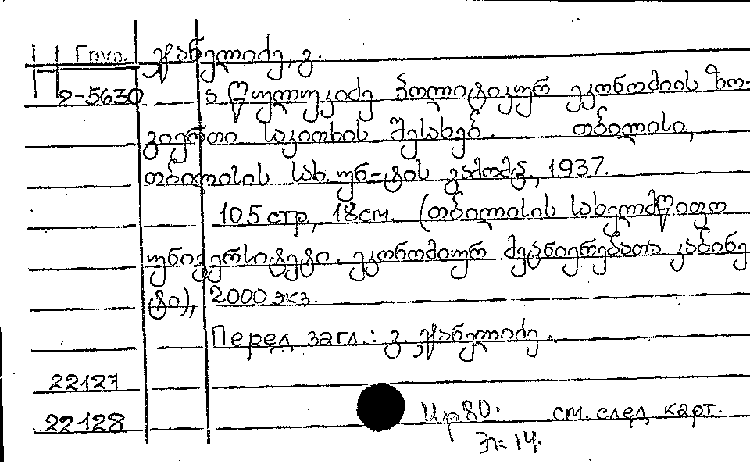 Груз. ჭანელიძე, გ.
2-5630 ა. წულუკიძე პოლიტიკურ ეკონომიის ზო-
გიერთი საკითხის შესახებ. თბილისი,
თბილისის სახ. უნ-ტის გამომც., 1937.
105 стр, 18см. (თბილისის სახელმწიფო
უნივერსიტეტი. ეკონომიურ მეცნიერებათა კაბინე
ტი), 2000 экз.
Перед загл.: გ. ჭანელიძე.
22127
22128 Цр80. см. след карт.
Эк 14.